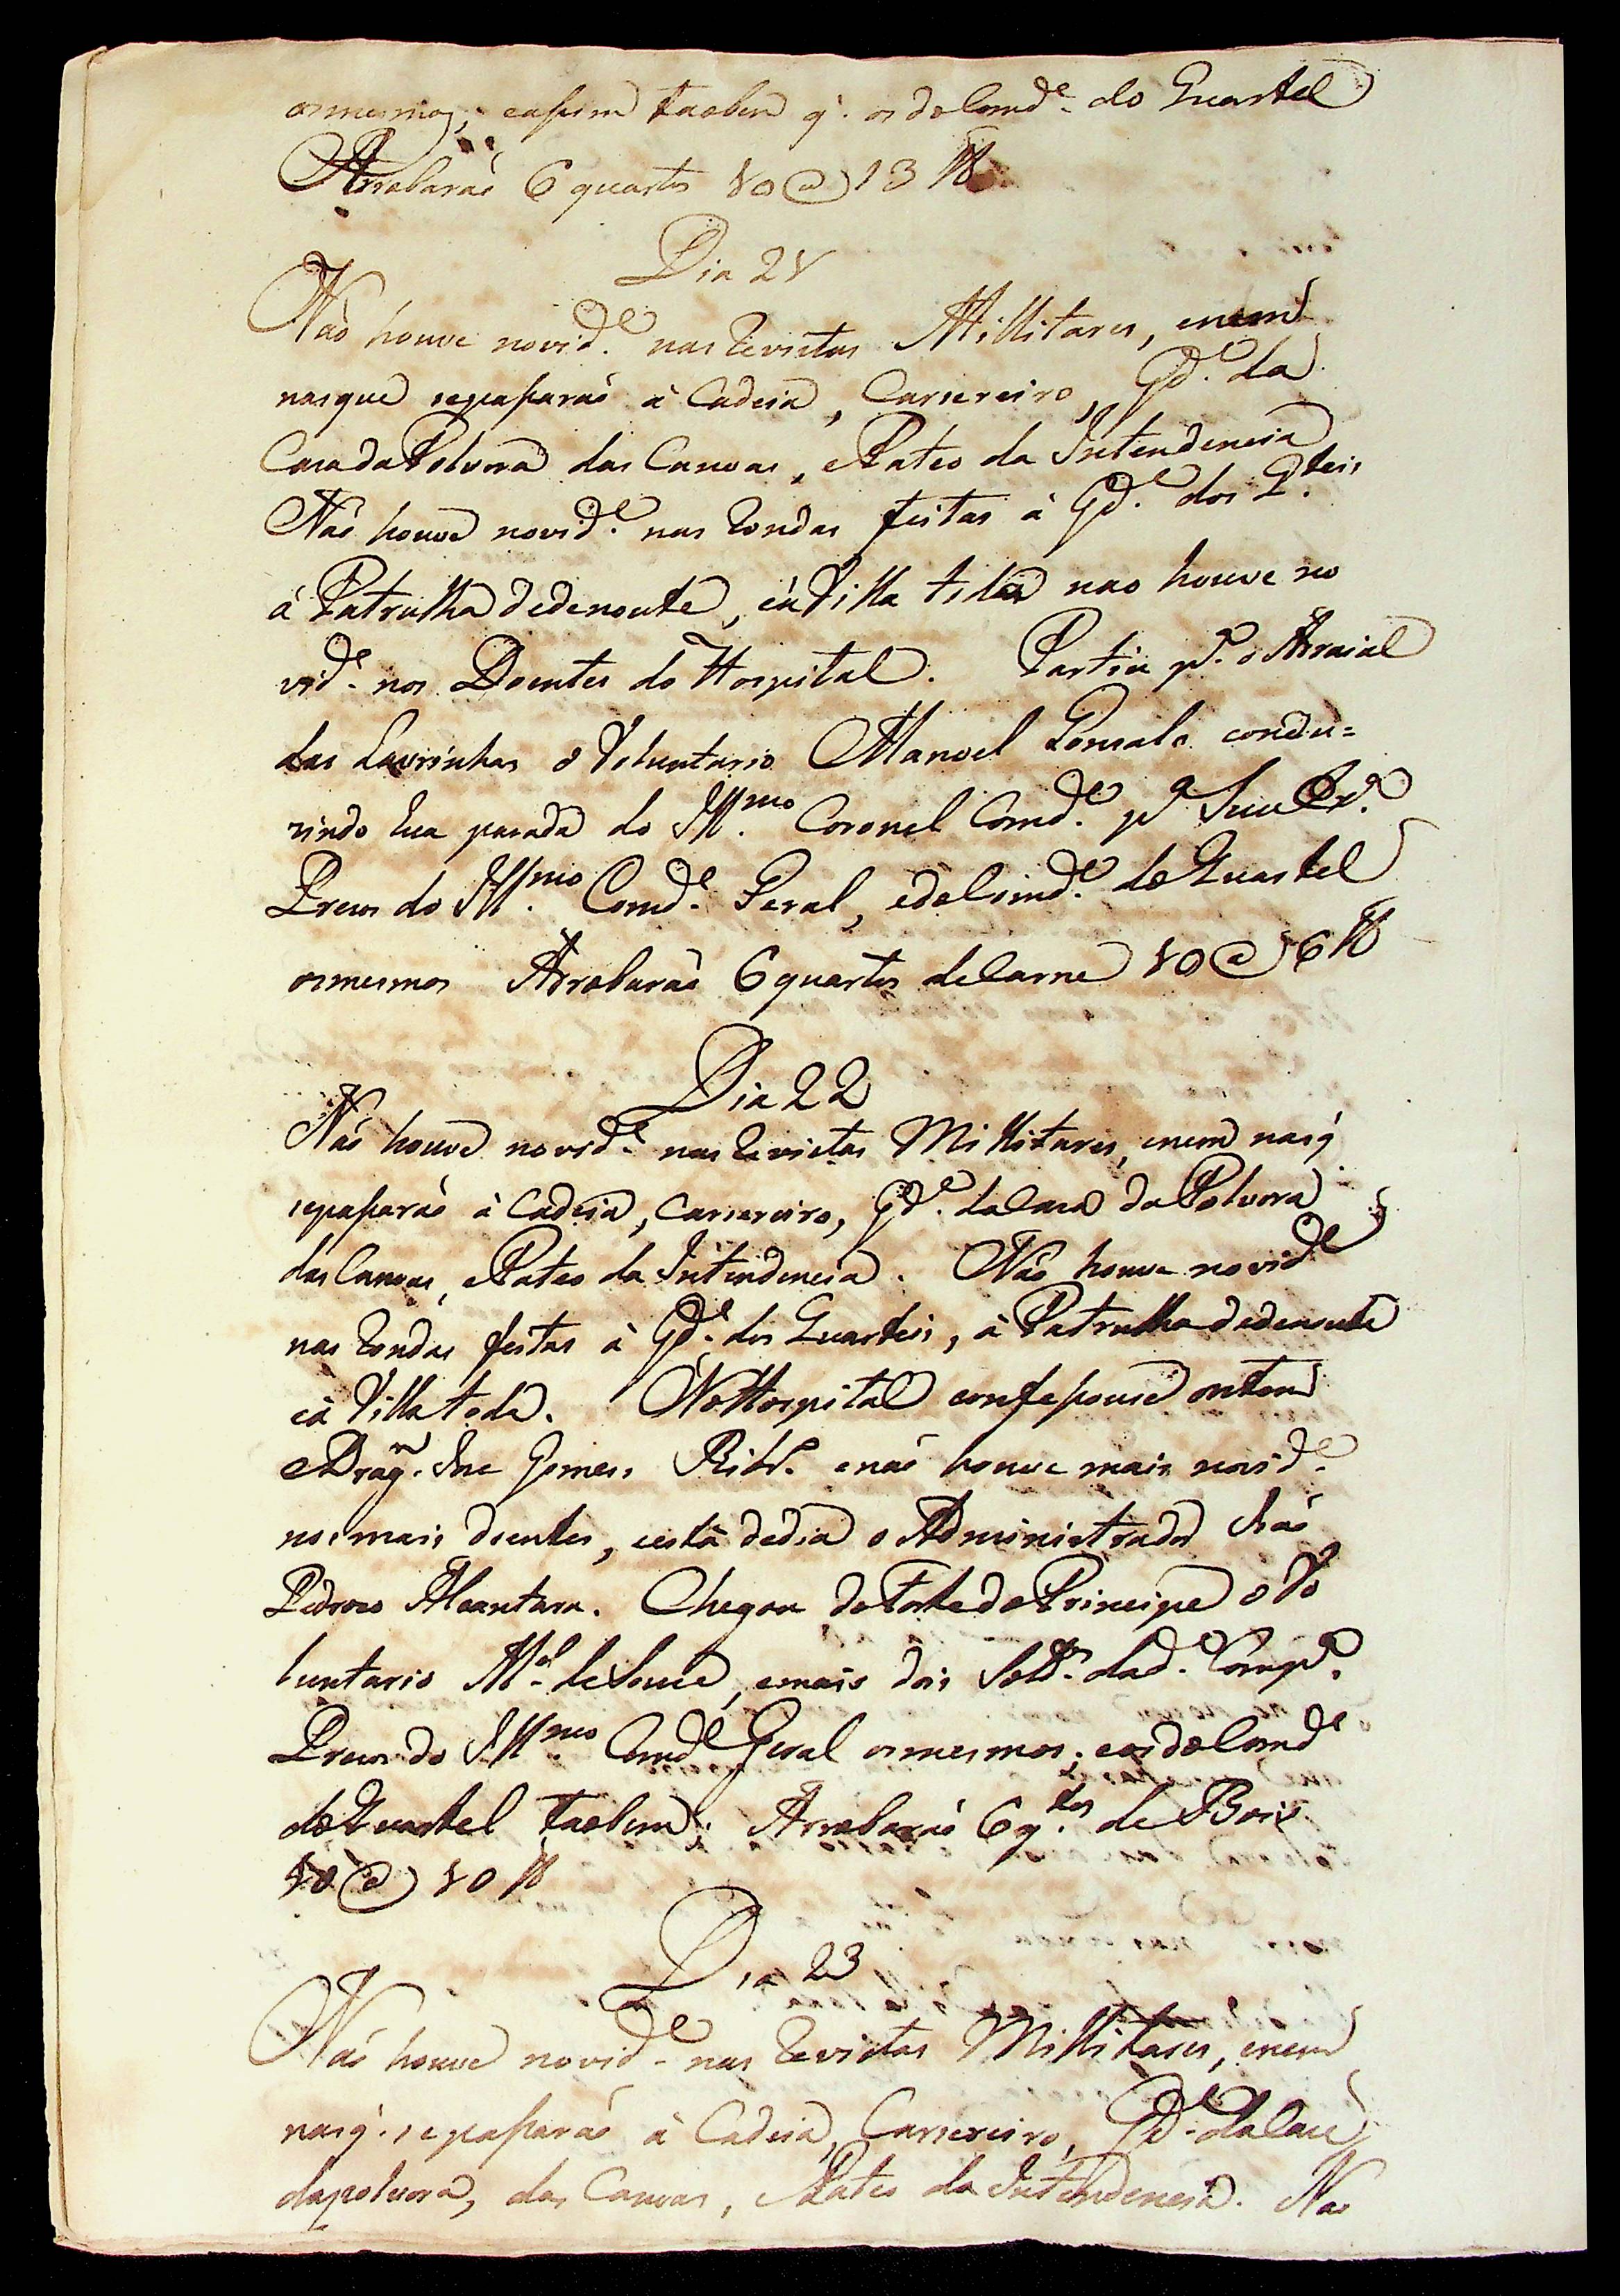 osmesmos; eaſsim taobem q'. os do Comd.e do Quartel
Arrobaraõ 6 quartos 10 @ 13 ℔
Dia 21
Naõ houve novid.e nas Revistas Millitares, enem
nasque sepaſsaraõ à Cadeia, Carsereiro, Gd.e da
Casa da Polvora das Canoas, e Pateo da Intendencia
Naõ houve novid.e nas Rondas feitas à Gd.e dos Q.teis
à Patrulha dedenoute, eàVilla toda nao houve no
vid.e nos Doentes do Hospital. Partiu p.a o Arraial
das Lavrinhas o Voluntario Manoel Gonsalo condu=
zindo hua parada do Ill.mo Coronel Comd.e p.a
Prezos do Ill.mo Comd.e Geral, edoComd.e do Quartel
osmesmos Arrobaraõ 6 quartos deCarne 10 @ 6 ℔
Dia 22
Naõ houve novid.e nas Revistas Millitares, enem nasq'
sepaſsaraõ à Cadeia, Carsereiro, Gd.e daCasa da Polvora
das Canoas, e Pateo da Intendencia. Naõ houve novid.e
nas Rondas feitas à Gd.e dos Quarteis, à Patrulha dedenoute
eà Villa toda. NoHospital confeſsouse ontem
o Drag.m Jose Gomes Ribr.o enaõ houve mais novid.e
nos mais doentes, eestà dedia o Administrador Joaõ
Pedro Alcantara. Chegou do Forte do Principe o Vo
luntario M.el deSouza, emais dois Sold.os dad.a Comp.a
Prezos do Ill.mo Comd.e Geral osmesmos; eos doComd.e
do Quartel taobem; Arrobaraõ 6 q.tos de Bois
10 @ 10 ℔
Dia 23
Naõ houve novid.e nas Revistas Millitares, enem
nasq'. sepaſsaraõ à Cadeia, Carsereiro, Gd.e daCasa
dapolvora, das Canoas, e Pateo da Intendencia. Nao